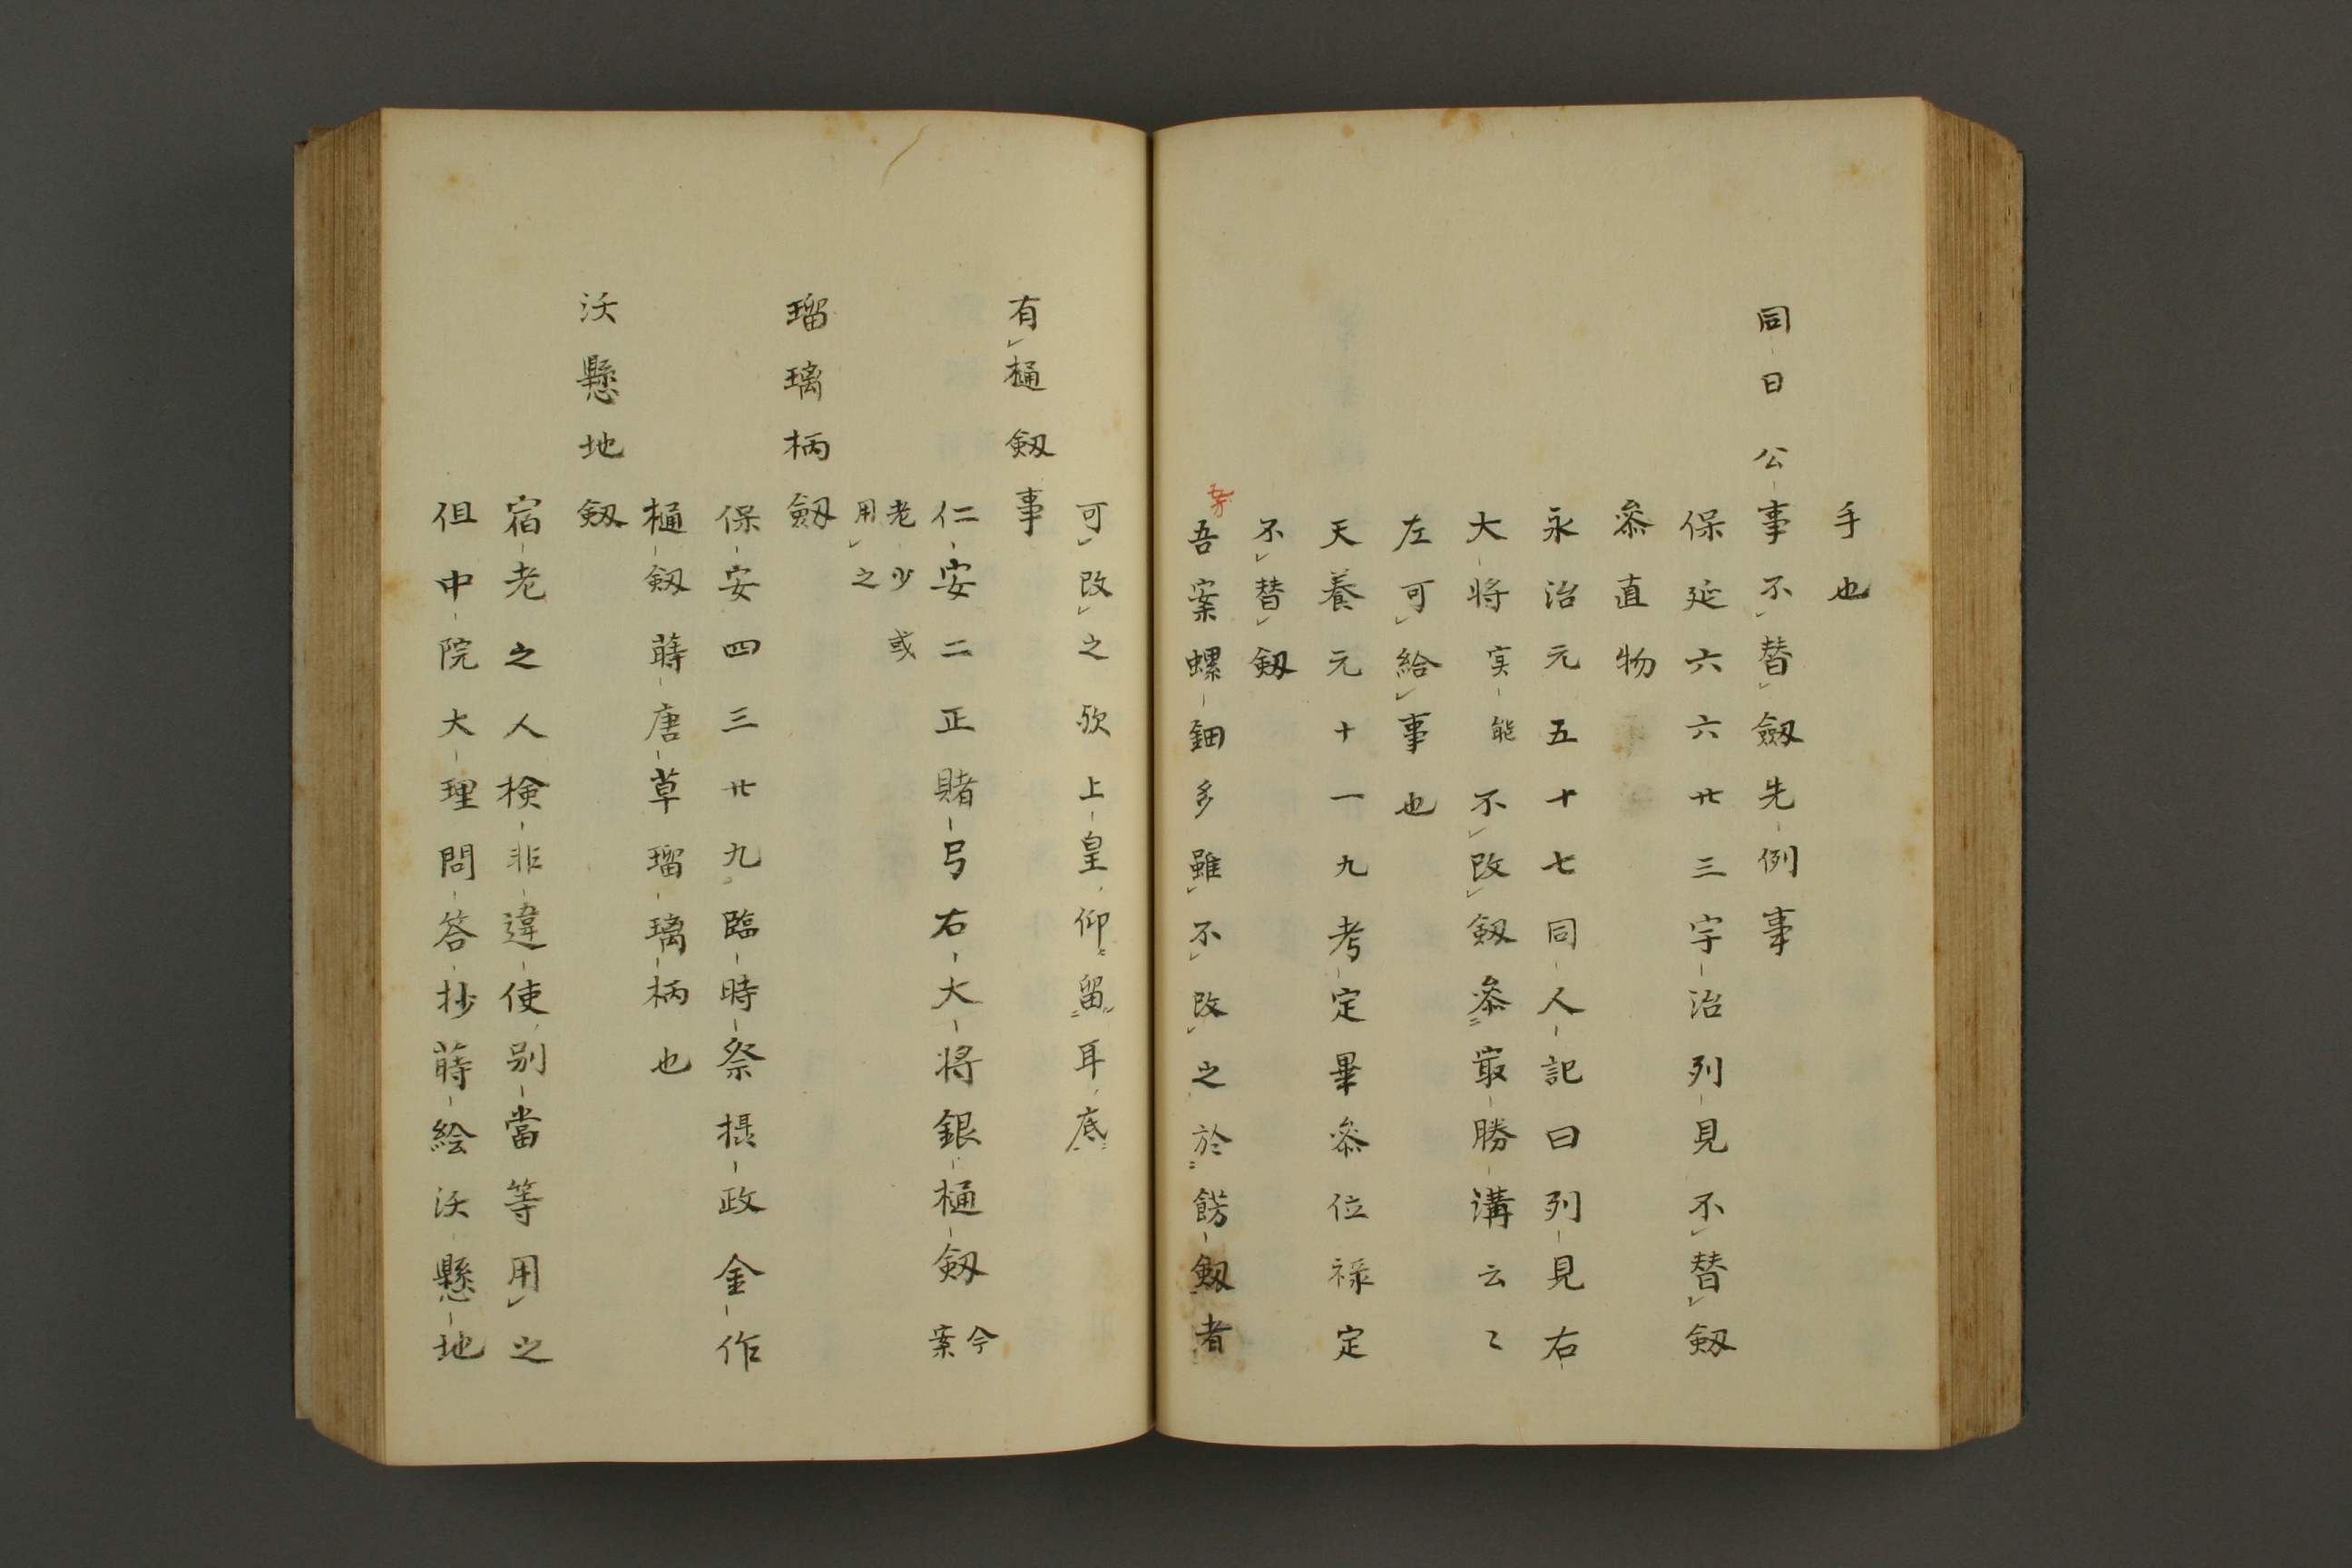 手也
同日公事不替劔先例事
保延六六廿三宇治列見不替劔
叅直物
永治元五十七同人記曰列見右
大将実能不改劔叅㝡勝講云々
左可給事也
天養元十一九考定畢叅位禄定
不替劔
吾案螺鈿多雖不改之於餝劔者
可改之欤上皇仰留耳底
有樋劔事
仁安二正賭弓右大将銀樋劔今案
老少或用之
瑠璃柄劔
保安四三廿九臨時祭摂政金作
樋劔蒔唐草瑠璃柄也
沃懸地劔
宿老之人検非違使別當等用之
但中院大理問答抄蒔絵沃懸地